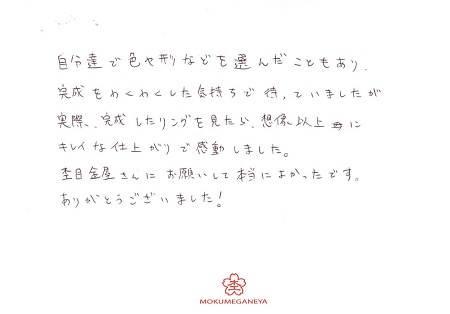 自分達で色や形などを選んだこともあり、
完成をわくわくした気持ちで待っていましたが
実際、完成したリングを見たら、想像以上に
キレイな仕上がりで感動しました。
杢目金屋さんにお願いして本当によかったです。
ありがとうございました！
杢
MOKUMEGANEYA